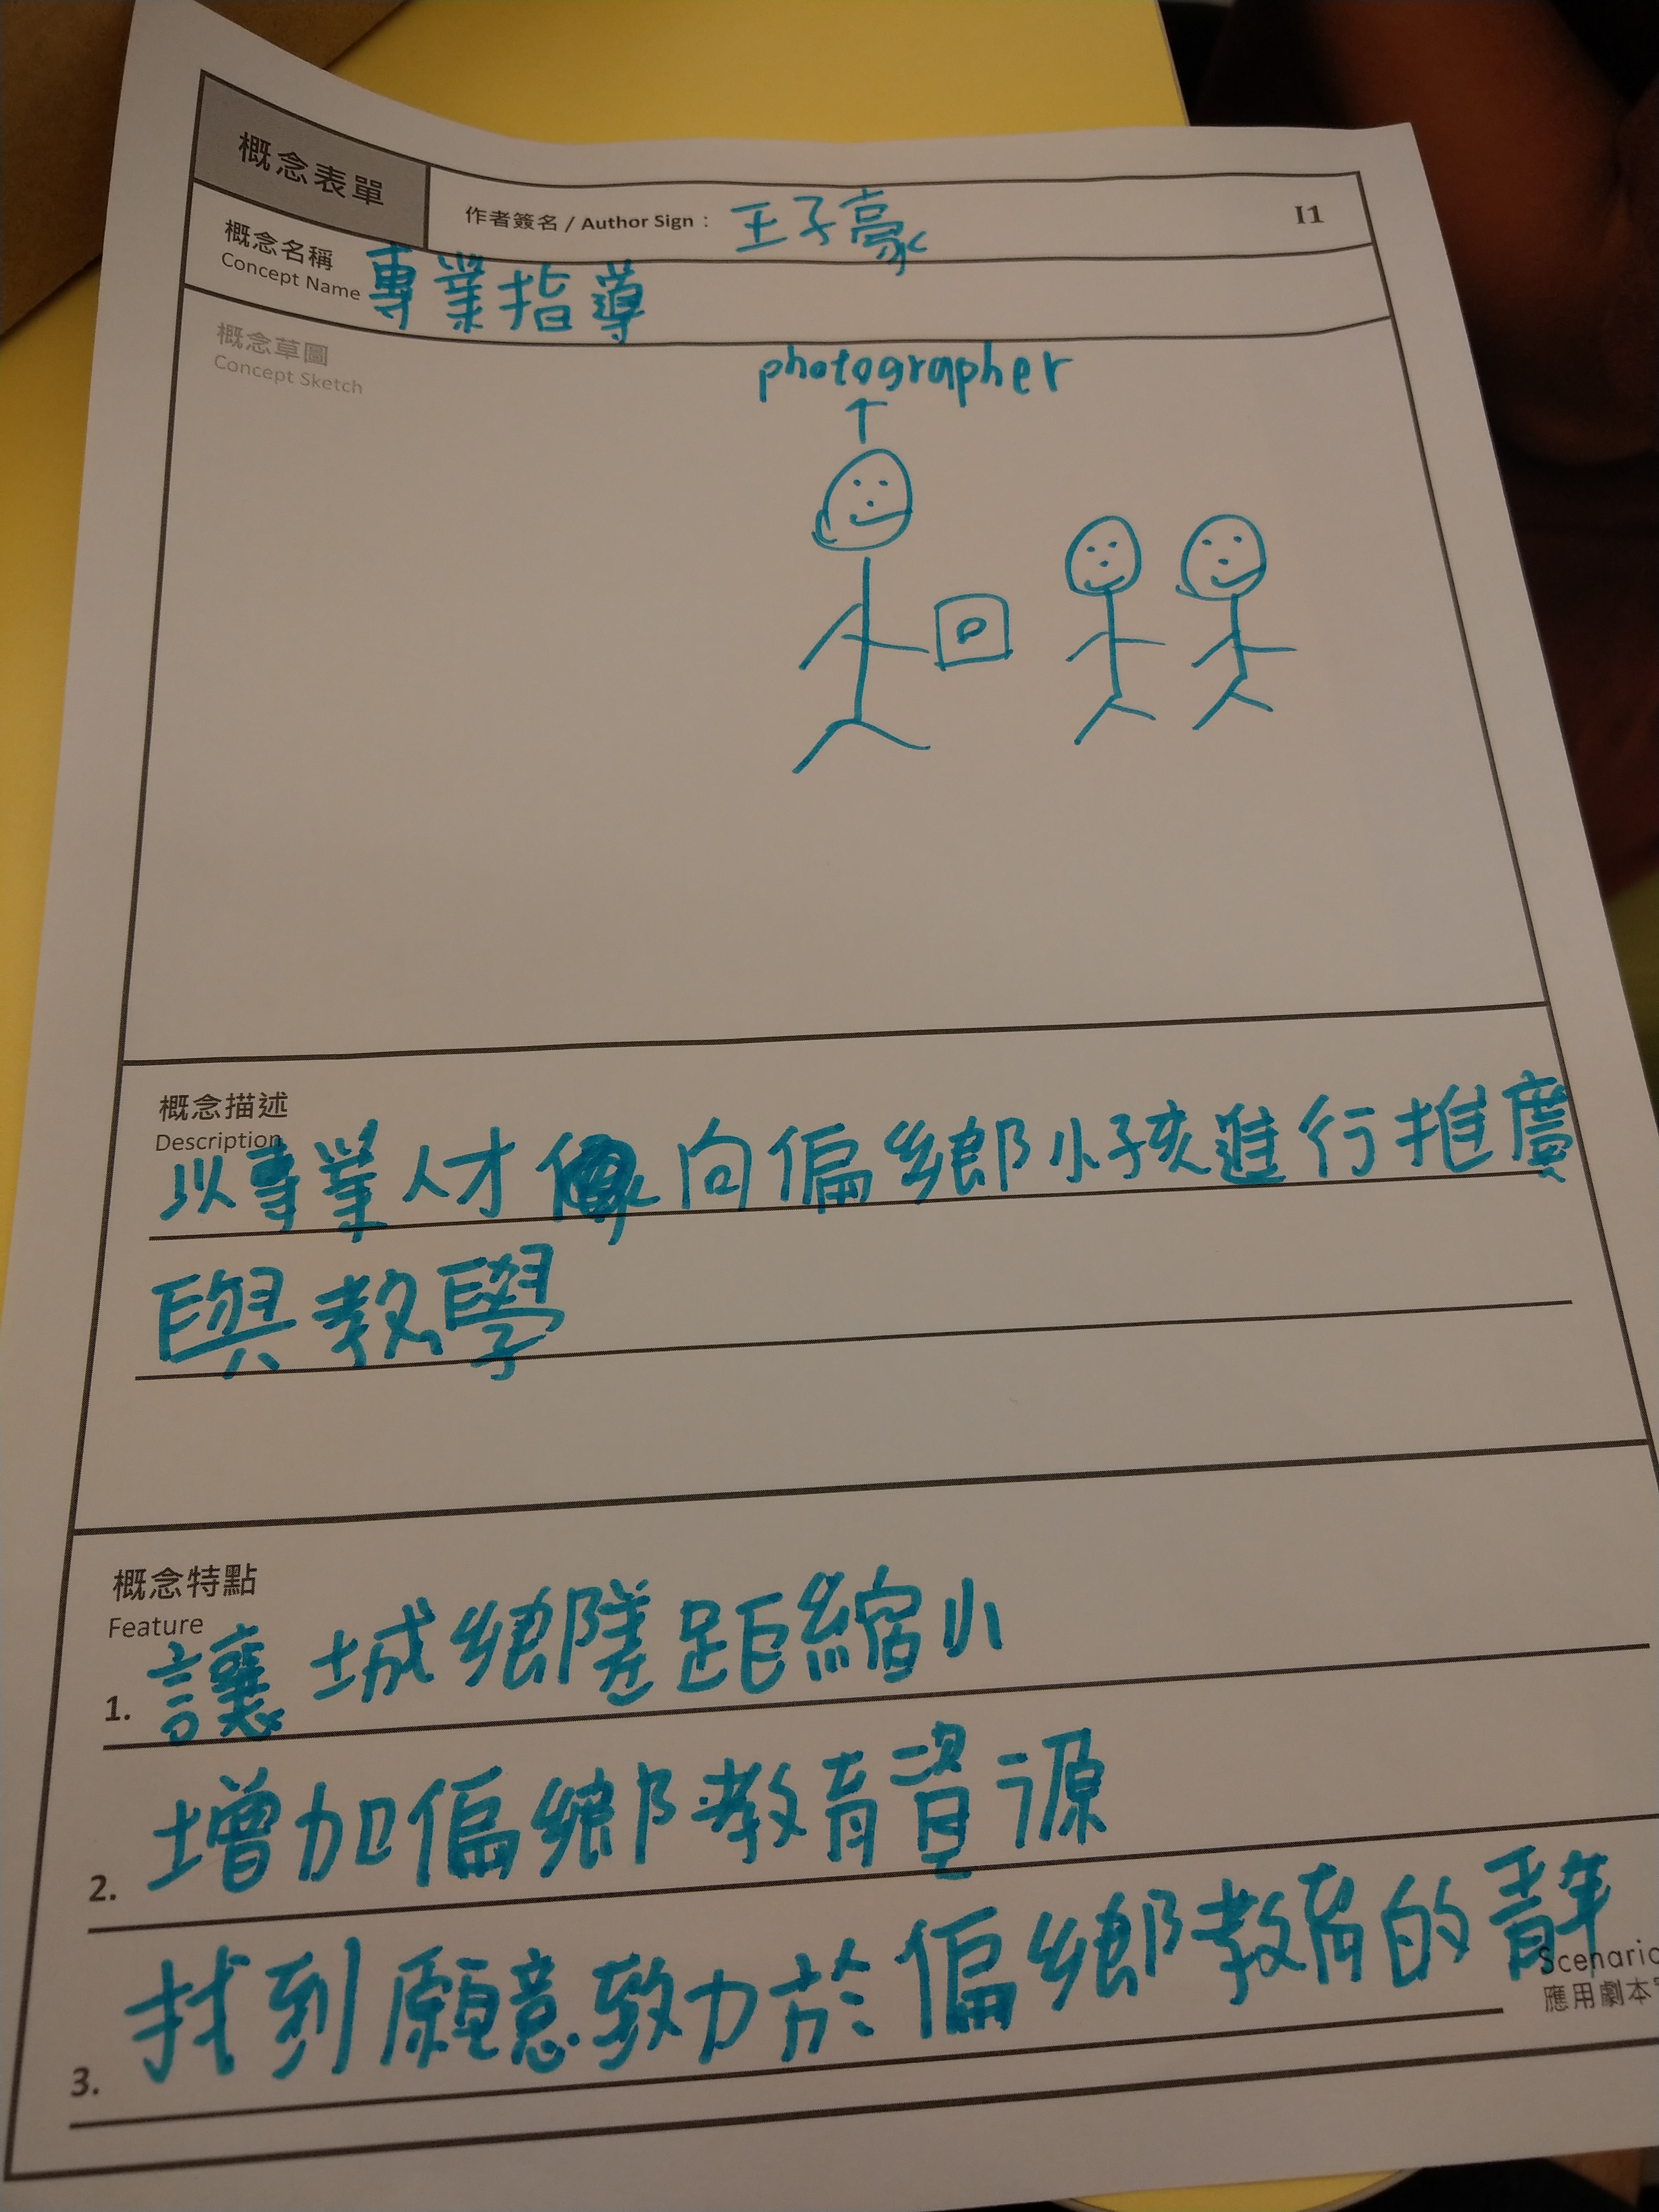 概念表單
作者簽名 / Author Sign： 王子豪
I1
概念名稱
Concept Name
專業指導
概念草圖
Concept Sketch
photographer
概念描述
Description
以專業人才 向偏鄉小孩進行推廣
與教學
概念特點
Feature
1. 讓城鄉差距縮小
2. 增加偏鄉教育資源
3. 找到願意致力於偏鄉教育的青年
Scenario
應用劇本